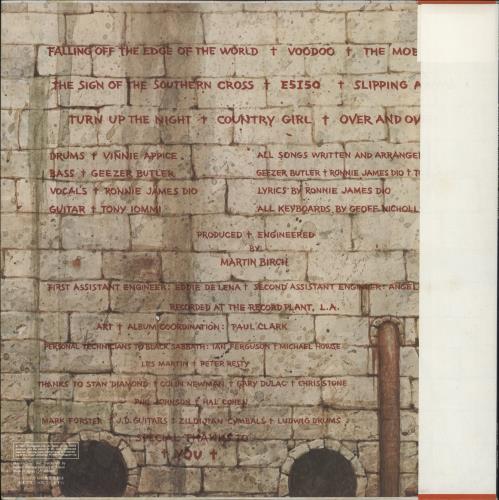 FALLING OFF THE EDGE OF THE WORLD † VOODOO †, THE MOB
THE SIGN OF THE SOUTHERN CROSS † E5150 † SLIPPING A
TURN UP THE NIGHT † COUNTRY GIRL † OVER AND OV
DRUMS † VINNIE APPICE
BASS † GEEZER BUTLER
VOCALS † RONNIE JAMES DIO
GUITAR † TONY IOMMI
ALL SONGS WRITTEN AND ARRANGE
GEEZER BUTLER † RONNIE JAMES DIO † TO
LYRICS BY RONNIE JAMES DIO
ALL KEYBOARDS BY GEOFF NICHOLL
PRODUCED † ENGINEERED
BY
MARTIN BIRCH
FIRST ASSISTANT ENGINEER: EDDIE DE LENA † SECOND ASSISTANT ENGINEER: ANGEL
RECORDED AT THE RECORD PLANT, L.A.
ART † ALBUM COORDINATION: PAUL CLARK
PERSONAL TECHNICIANS TO BLACK SABBATH: IAN FERGUSON † MICHAEL HOWSE
LES MARTIN † PETER RESTY
THANKS TO STAN DIAMOND † COLIN NEWMAN † GARY DULAC † CHRIS STONE
PHIL JOHNSON † HAL COHEN
MARK FORSTER † J.D. GUITARS † ZILDJIAN CYMBALS † LUDWIG DRUMS
SPECIAL THANKS TO
† YOU †